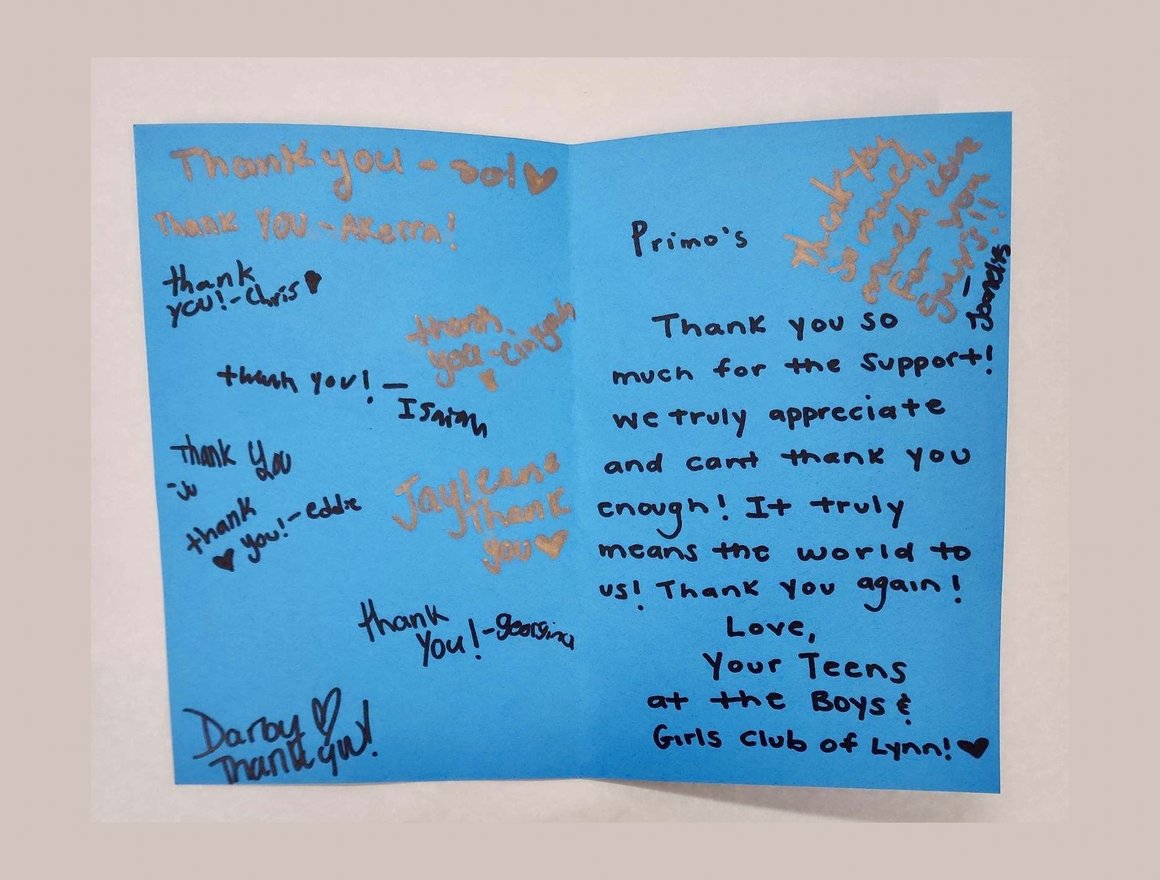 Thank you - Sol
Thank YOU - Akerra!
thank
you! - Chris
thank
you - Ciniyah
thank you! -
Isaiah
Thank You
- Ju
thank
you! - eddie
Jayleane
thank
you
thank
you! - georgina
Darby
Thank you!
Primo's
thank you
so much,
much love
for you
guys!!
-
Thank you so
much for the support!
we truly appreciate
and cant thank you
enough! It truly
means the world to
us! Thank you again!
Love,
Your Teens
at the Boys &
Girls Club of Lynn!